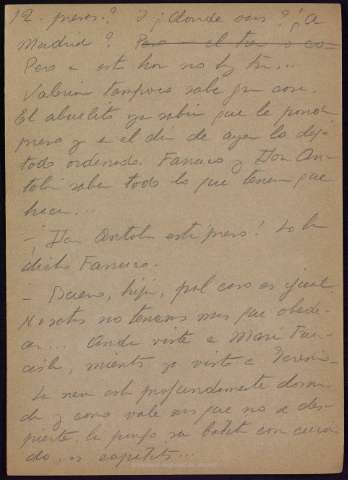 12. preses? ¿Y donde vas? ¿A
Madrid?
Pero a esta hora no hay tren...
Valerín tampoco sabe gran cosa.
El abuelito ya sabía que le pondrían
preso y a el día de ayer lo dejó
todo ordenado. Fanaco y Don An-
tolín saben todo lo que tienen que
hacer...
– ¡Don Antolín está preso! Lo ha
dicho Fanaco.
– Bueno, hija, pal caso es igual.
Nosotros no tenemos mas que obede-
cer... Anda viste a Mari
mientras yo visto a
La nena está profundamente dormi-
da y como vale mas que no se des-
pierte le pongo su con cuida-
do, y zapatitos...